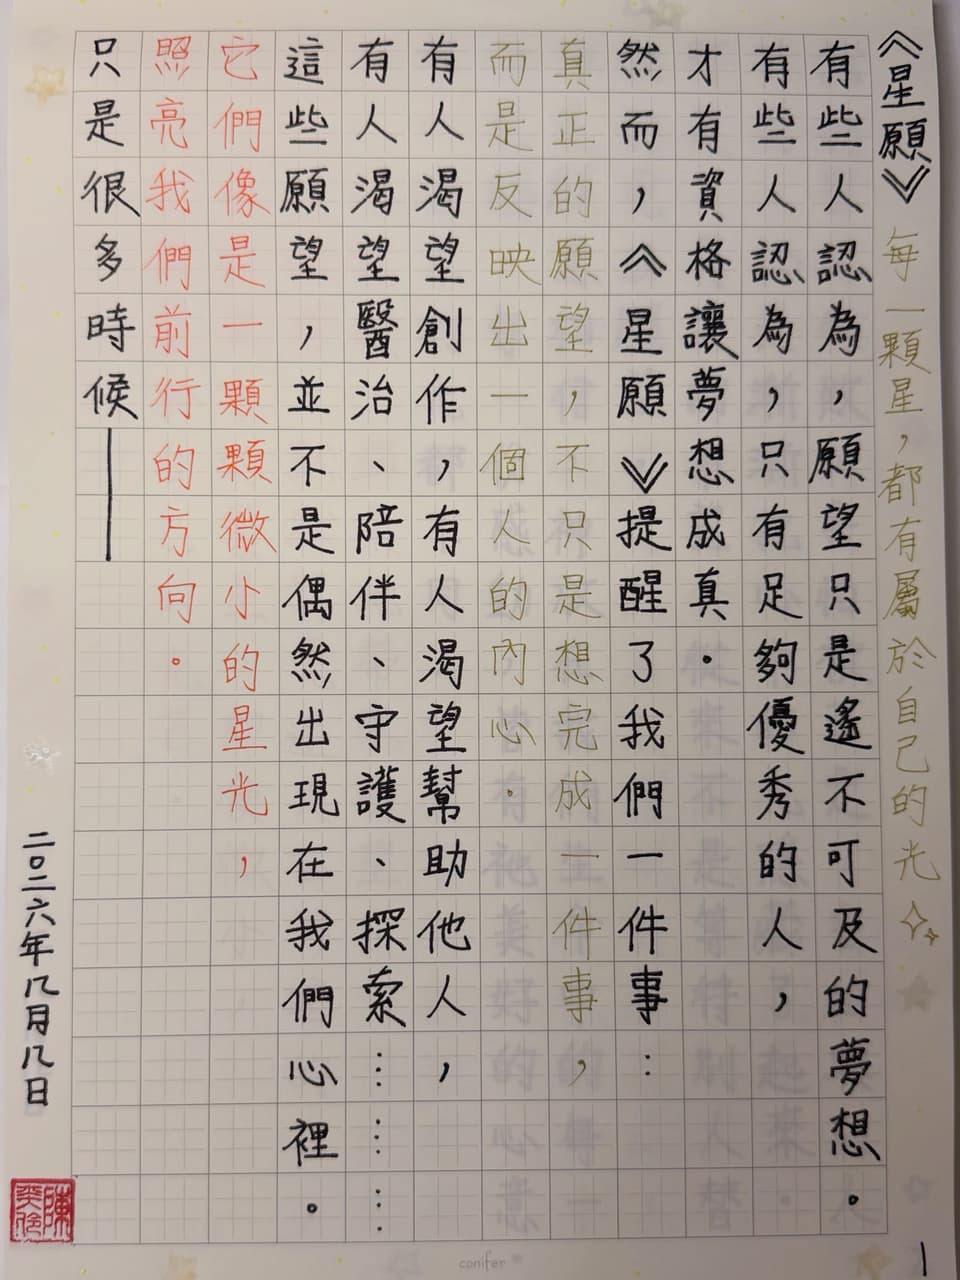 《星願》 每一顆星，都有屬於自己的光
有些人認為，願望只是遙不可及的夢想。
有些人認為，只有足夠優秀的人，
才有資格讓夢想成真。
然而，《星願》提醒了我們一件事：
真正的願望，不只是想完成一件事，
而是反映出一個人的內心。
有人渴望創作，有人渴望幫助他人，
有人渴望醫治、陪伴、守護、探索………
這些願望，並不是偶然出現在我們心裡。
它們像是一顆顆微小的星光，
照亮我們前行的方向。
只是很多時候——
二〇二六年八月八日
conifer
1